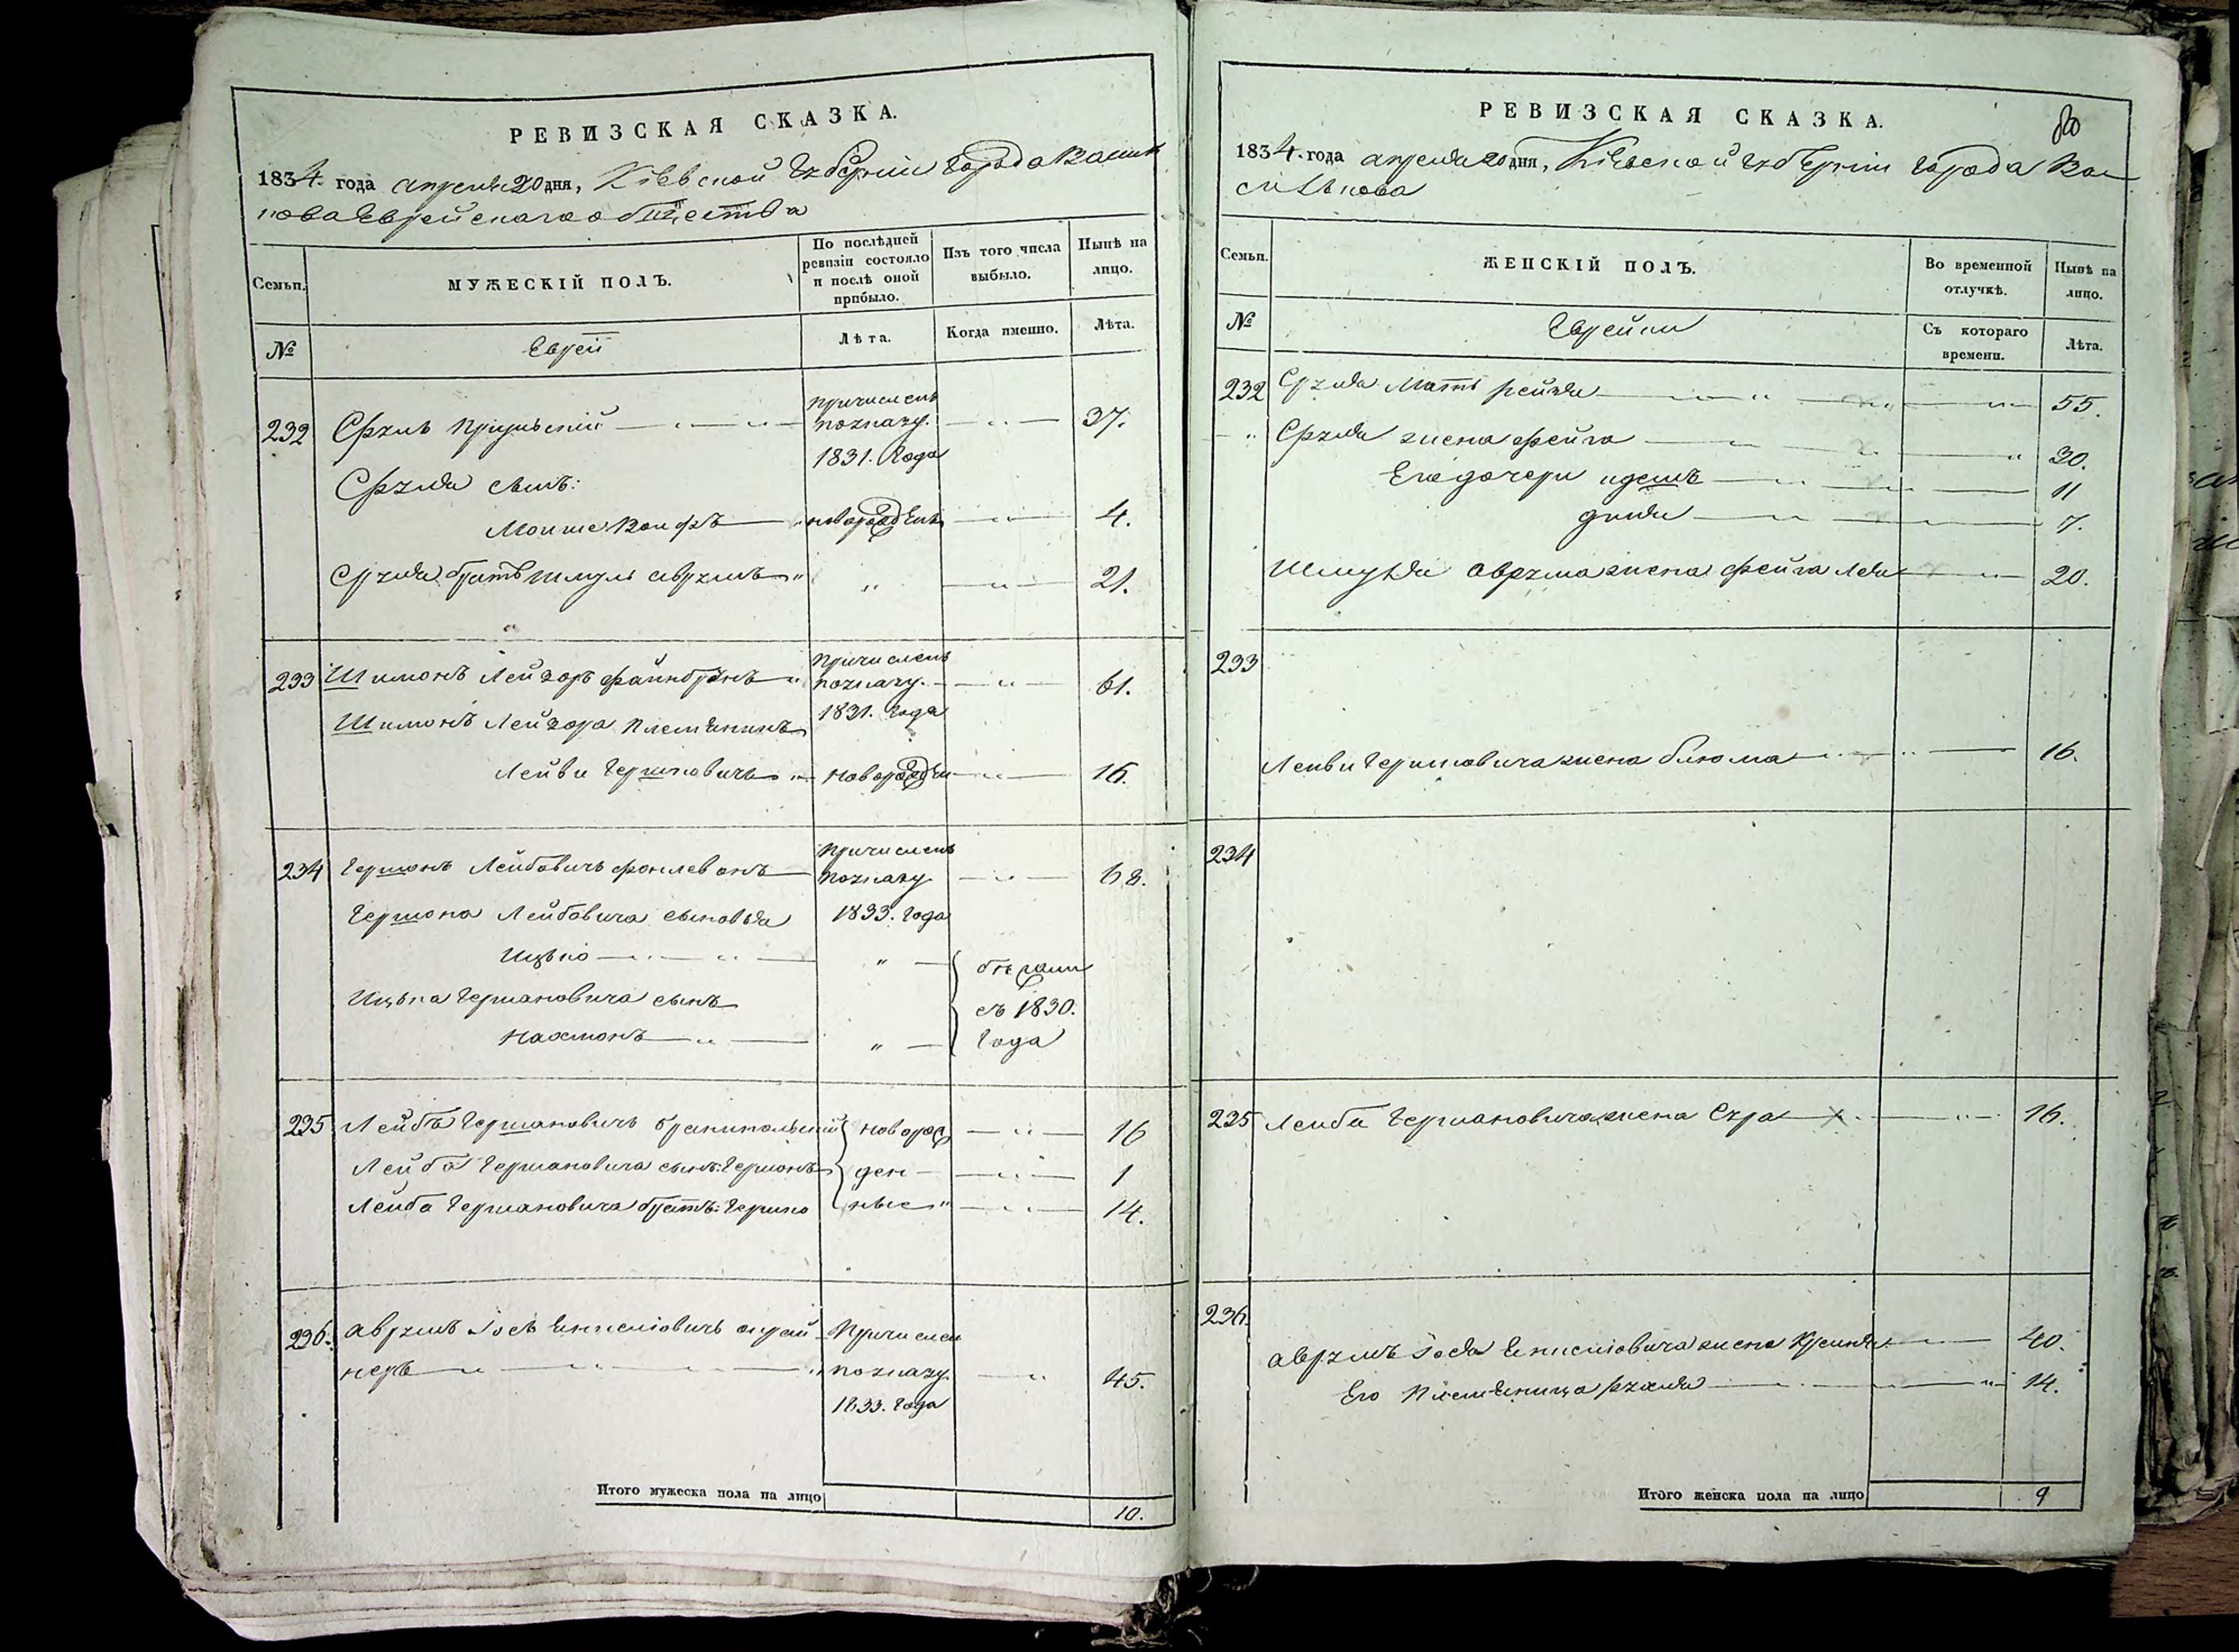 РЕВИЗСКАЯ СКАЗКА.
1834. года апреля 20 дня, Кіевской Губерніи города Васил
кова Еврейскаго общества
Семьи.
МУЖЕСКІЙ ПОЛЪ.
По послѣдней ревизіи состояло и послѣ оной прибыло.
Изъ того числа выбыло.
Нынѣ на лицо.
№
Евреи
Лѣта.
Когда именно.
Лѣта.
232 Сруль причисленъ
по указу. 37.
1831. Года
Сруля сынъ:
Мошко Вольфъ новорожденъ 4.
Сруля братъ Шмуль Аврумъ " 21.
233 Шимонъ Лейзоръ Файнбрунъ причисленъ
по указу. 61.
Шимонъ Лейзора племянникъ 1831. года
Лейви Гершковичъ новорожден 16.
234 Гершонъ Лейбовичъ причисленъ
по указу 68.
Гершона Лейбовича сыновья 1833. года
Ицько " бѣжали
Ицька Гершановича сынъ съ 1830.
Нахмонъ " года
235 Лейбъ Гершановичъ новорож 16
Лейба Гершановича сынъ: Гершонъ ден 1
Лейба Гершановича братъ: Гершко ные " 14.
236. Аврумъ Іосъ причислен
неръ по указу. 45.
1833. года
Итого мужеска пола на лицо 10.
80
РЕВИЗСКАЯ СКАЗКА.
1834. года апреля 20 дня, Кіевской Губерніи города Ва
силькова
Семьи.
ЖЕНСКІЙ ПОЛЪ.
Во временной отлучкѣ.
Нынѣ на лицо.
№
Еврейки
Съ котораго времени.
Лѣта.
232 Сруля мать Рейзя 55.
" Сруля жена Фейга 30.
Его дочери 11
7.
Шмуля Аврума жена Фейга Лея 20.
233
Лейви Гершковича жена Блюма 16.
234
235 Лейба Гершановича жена Сура 16.
236.
Аврумъ Іося жена 40.
Его племянница Рухля 14.
Итого женска пола на лицо 9